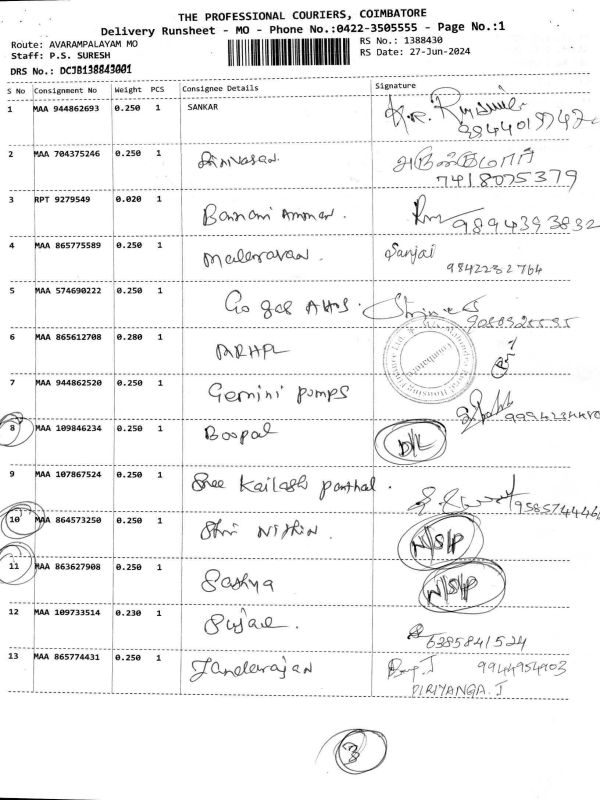 THE PROFESSIONAL COURIERS, COIMBATORE
Delivery Runsheet - MO - Phone No.:0422-3505555 - Page No.:1
Route: AVARAMPALAYAM MO
RS No.: 1388430
Staff: P.S. SURESH
RS Date: 27-Jun-2024
DRS No.: DCJB138843001
S No Consignment No Weight PCS Consignee Details Signature
1 MAA 944862693 0.250 1 SANKAR
2 MAA 704375246 0.250 1 அருண்குமார்
7418075379
3 RPT 9279549 0.020 1 Bannari Amman.
9894393832
4 MAA 865775589 0.250 1 Sanjai
9842232764
5 MAA 574690222 0.250 1 Go gas
6 MAA 865612708 0.280 1 MRHPL
7 MAA 944862520 0.250 1 Gemini pumps
8 MAA 109846234 0.250 1 Boopal D/L
9 MAA 107867524 0.250 1 Shree Kailash panthal.
9585744466
10 MAA 864573250 0.250 1 Shri Nithin. N/S/P
11 MAA 863627908 0.250 1 Sathya N/S/P
12 MAA 109733514 0.230 1
6385841524
13 MAA 865774431 0.250 1 9944954903
PIRIYANGA.J
3